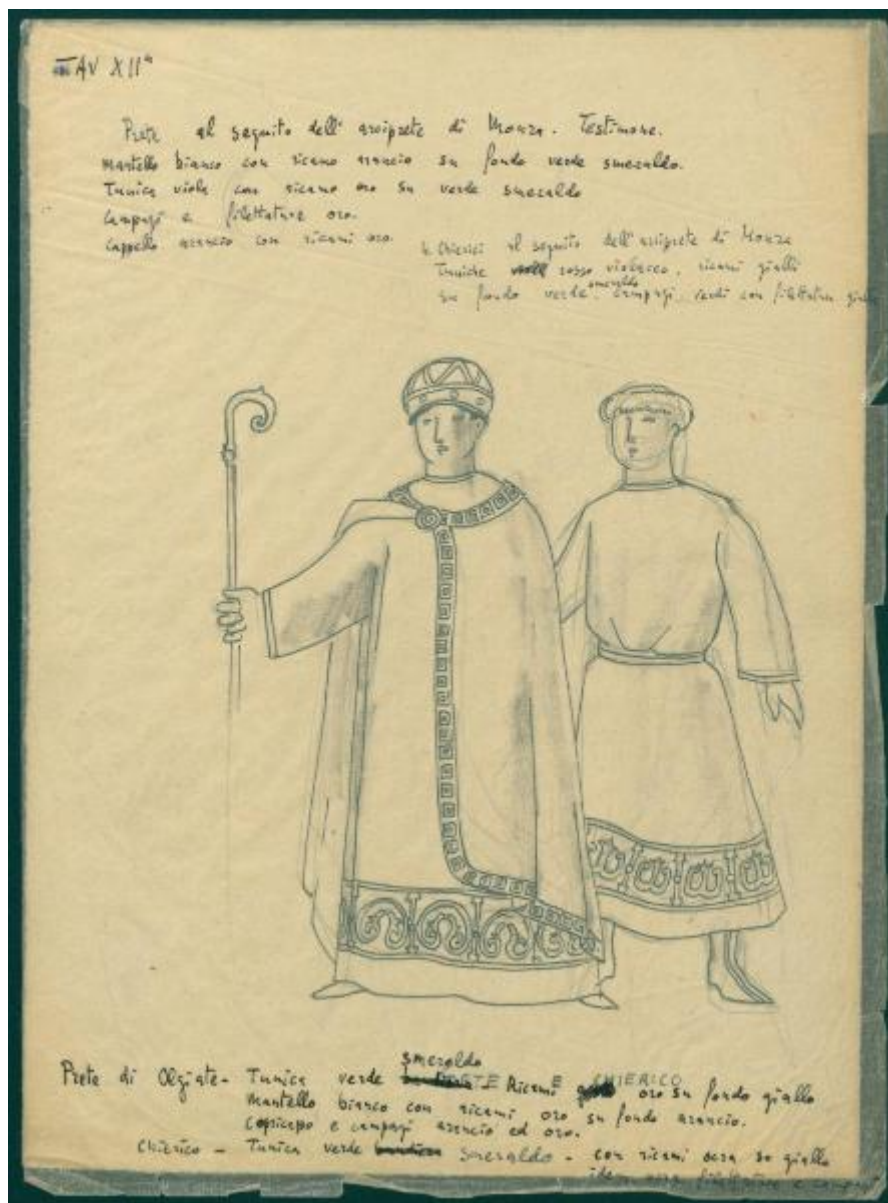 TAV XIIª
Prete al seguito dell' arciprete di Monza. Testimone.
Mantello bianco con ricamo arancio su fondo verde smeraldo.
Tunica viola con ricamo oro su verde smeraldo
Campagi e filettature oro.
Cappello arancio con ricami oro.
4. Chierici al seguito dell'arciprete di Monza
Tuniche rosso violaceo, ricami gialli
su fondo verde smeraldo. campagi verdi con filettature
Prete di Olgiate - Tunica verde smeraldo - Ricami oro su fondo giallo
E CHIERICO
Mantello bianco con ricami oro su fondo arancio.
Copricapo e campagi arancio ed oro.
Chierico - Tunica verde smeraldo - con ricami su giallo
idem filettature e